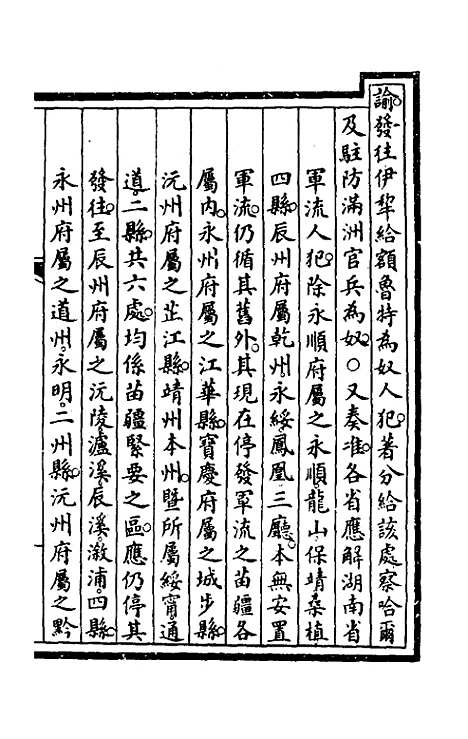 諭發往伊犂給額魯特為奴人犯著分給該處察哈爾
及駐防滿洲官兵為奴○又奏准各省應解湖南省
軍流人犯除永順府屬之永順龍山保靖桑植
四縣辰州府屬乾州永綏鳳凰三廳本無安置
軍流仍循其舊外其現在停發軍流之苗疆各
屬內永州府屬之江華縣寶慶府屬之城步縣
沅州府屬之芷江縣靖州本州暨所屬綏甯通
道二縣共六處均係苗疆緊要之區應仍停其
發往至辰州府屬之沅陵瀘溪辰溪漵浦四縣
永州府屬之道州永明二州縣沅州府屬之黔